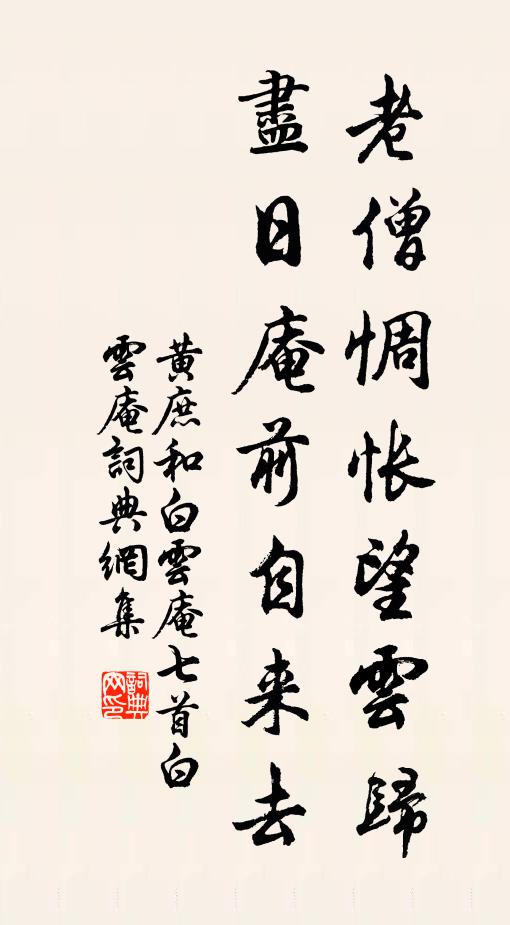 老僧惆怅望雲歸
盡日庵前自来去
黄庶和白雲庵七首白
雲庵詞典網集
詞典
网印